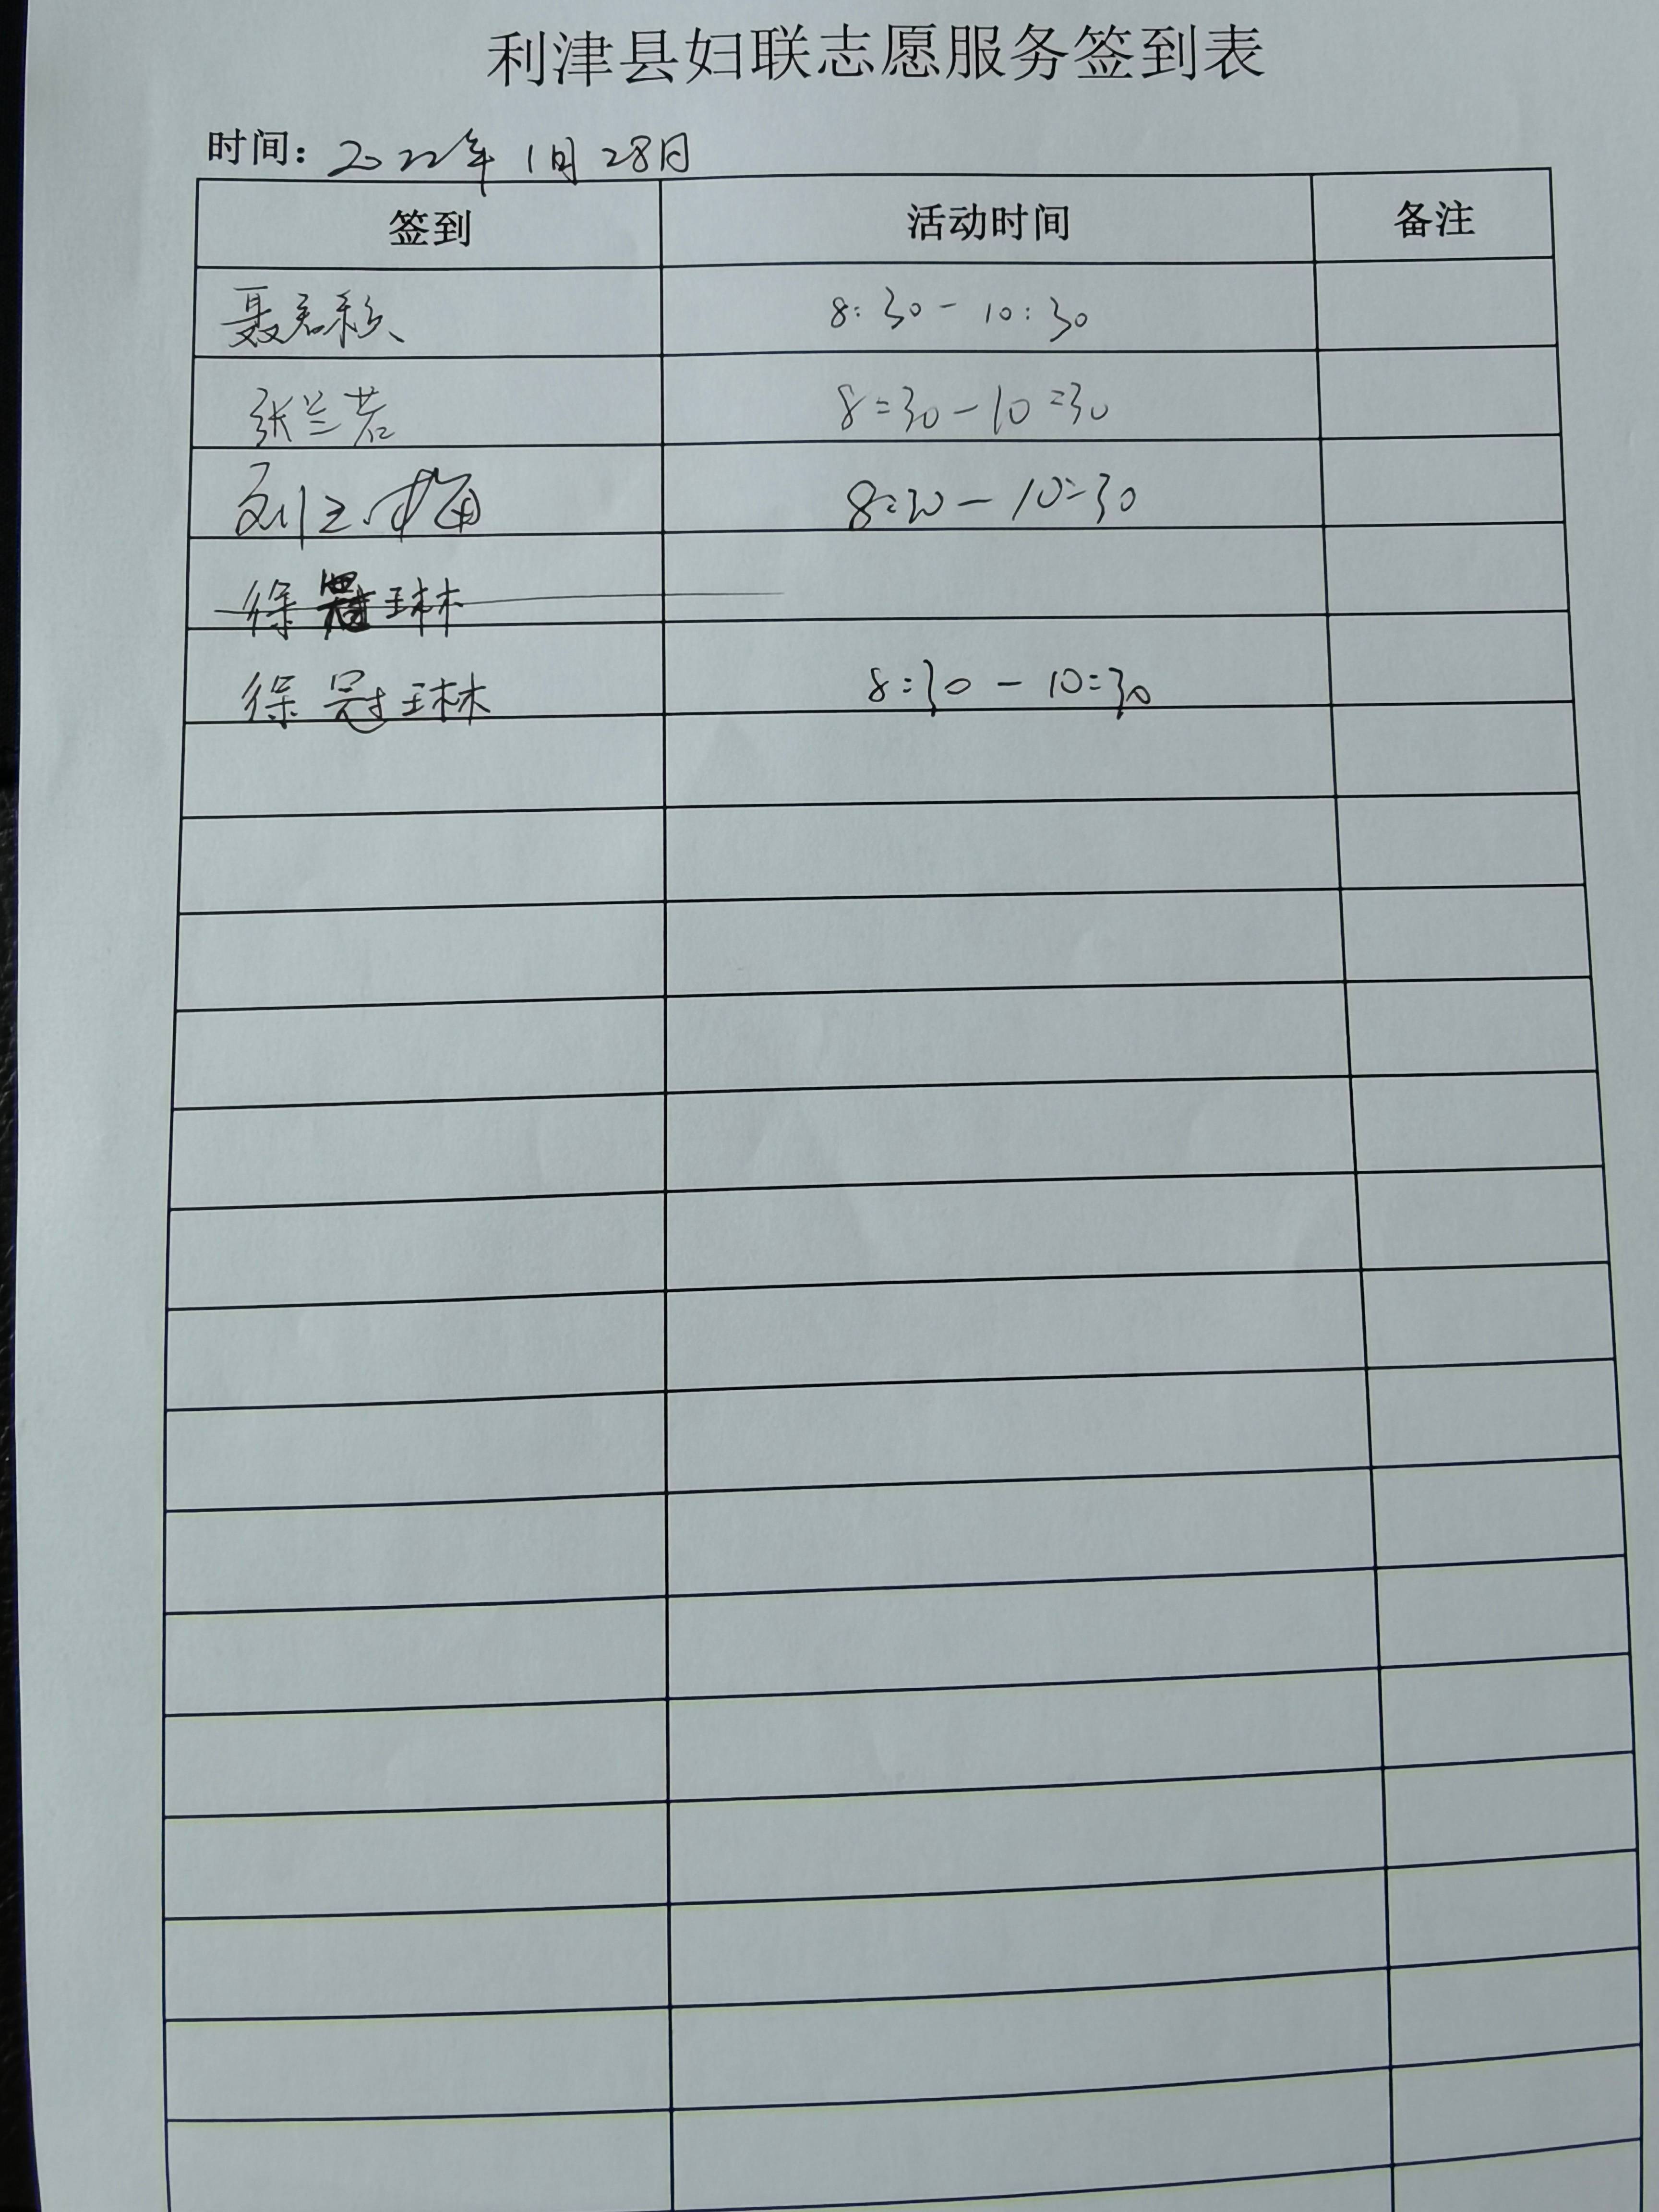 利津县妇联志愿服务签到表
时间：2022年1月28日
签到 活动时间 备注
8:30-10:30
张兰若 8:30-10:30
刘玉梅 8:30-10:30
徐冠琳
徐冠琳 8:30-10:30